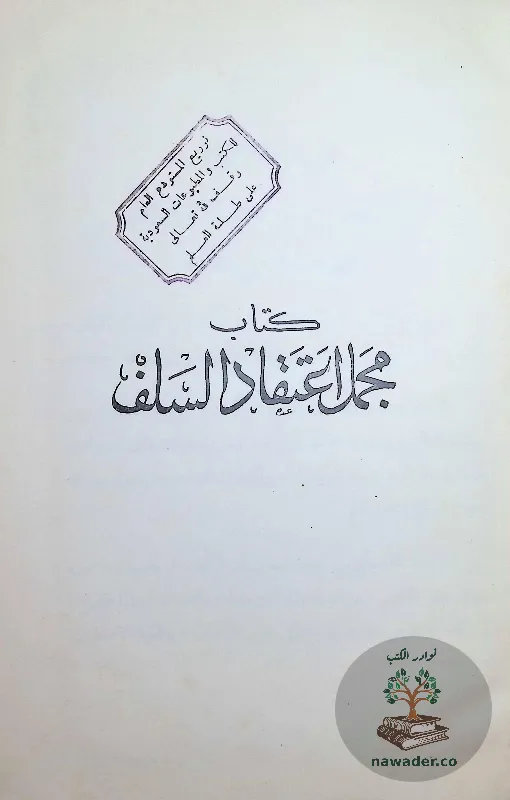 توزيع المستودع العام
للكتب والمطبوعات السعودية
وقف لله تعالى
على طلبة العلم
كتاب
مجمل اعتقاد السلف
نوادر الكتب
nawader.co